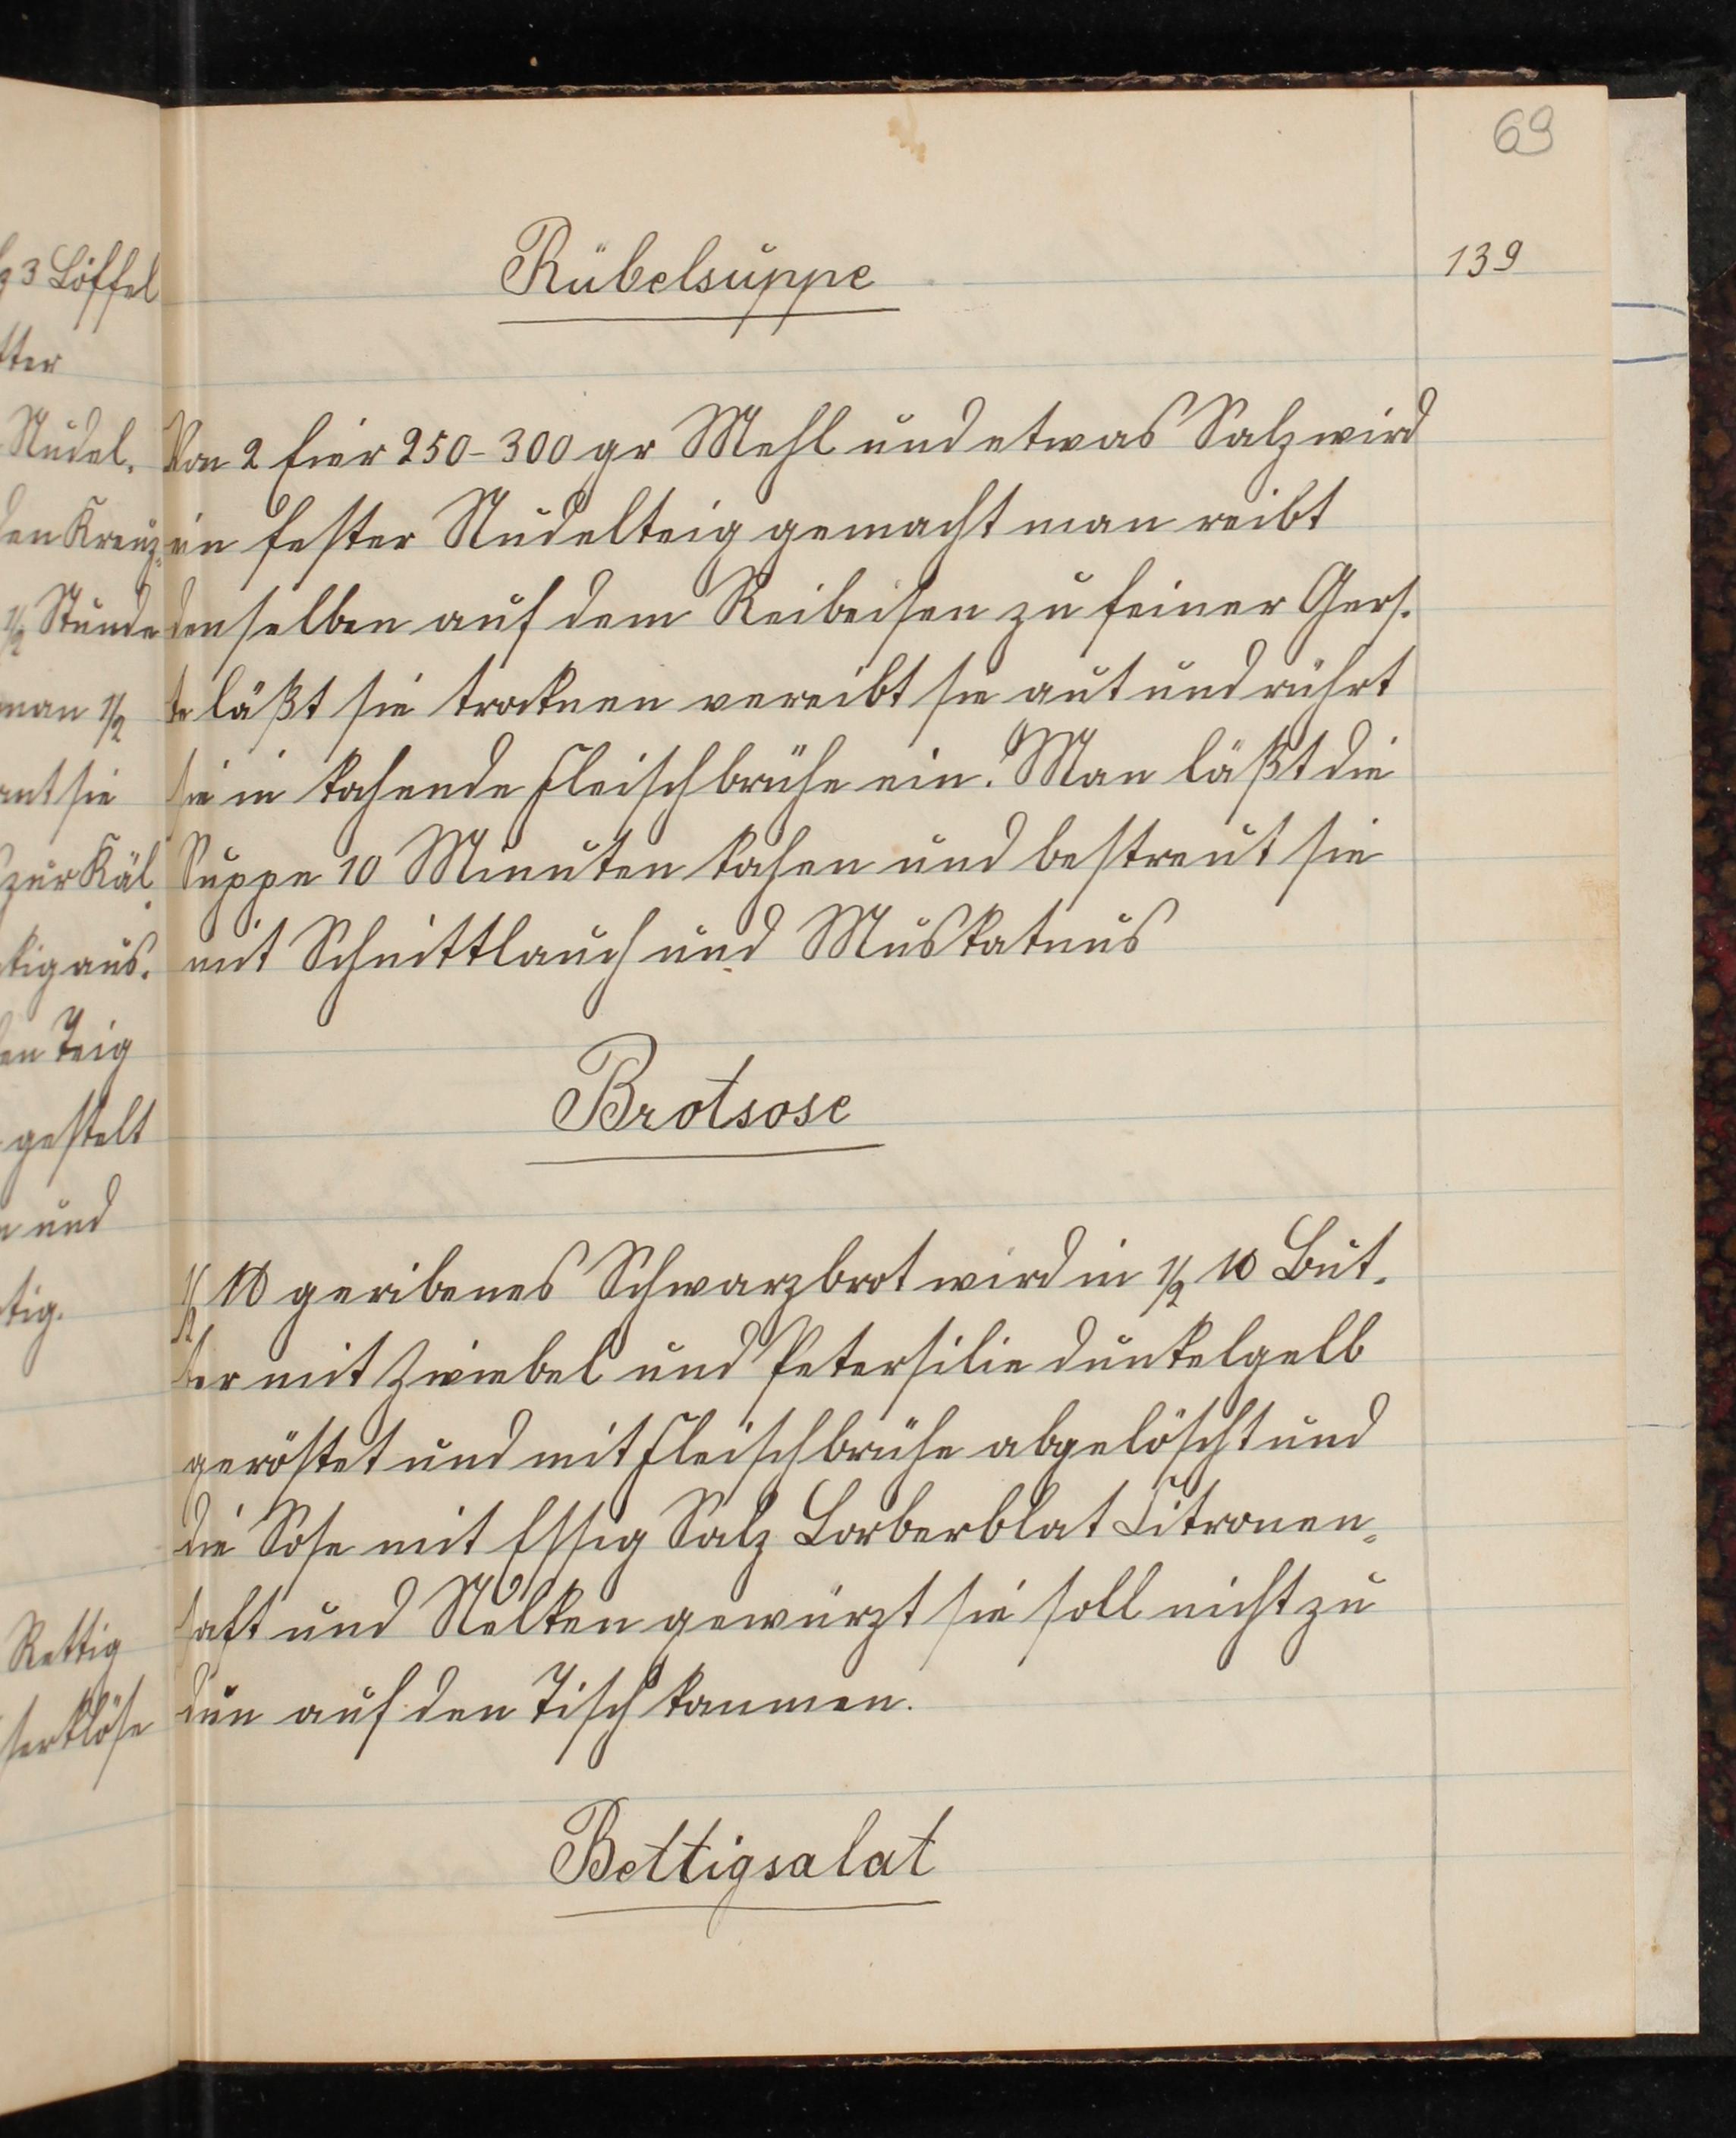 69
139
Rübelsuppe
Von 2 Eier 250-300 gr Mehl und etwas Salz wird
ein fester Nudelteig gemacht man reibt
denselben auf dem Reibeisen zu feiner Gers.
te läßt sie trocknen vereibt sie gut und rührt
sie in kochende Fleischbrühe ein. Man läßt die
Suppe 10 Minuten kochen und bestreut sie
mit Schnittlauch und Muskatnus
Brotsose
1/2 ℔ geribenes Schwarzbrot wird in 1/2 ℔ But.
ter mit Zwiebel und Petersilie dunkelgelb
geröstet und mit Fleischbrühe abgelöscht und
die Sose mit Essig Salz Lorberblat Citronen=
saft und Nelken gewürzt sie soll nicht zu
dün auf den Tisch kommen.
Bettigsalat
3 Löffel
tter
Nudel.
den Kreuz=
1/2 Stunde
man 1/2
sie
zur Käl.
tig aus.
en Teig
gestelt
und
tig.
Rettig
serklöse